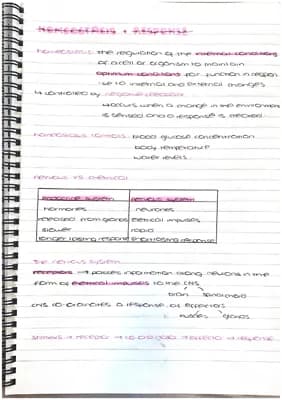 HOMEOSTASIS + RESPONSE
homeostasis: the regulation of the internal conditions
of a cell or organism to maintain
optimum conditions for function in respon
se to internal and external changes
↳ controlled by
↳ occurs when a change in the environment
is sensed and a response is
homeostasis controls: blood glucose concentration
body temperature
water levels
nervous vs chemical
endocrine system nervous system
hormones neurones
released from glands electrical impulses
slower rapid
longer lasting response short lasting response
the nervous system
receptors → passes information along neurons in the
form of electrical impulses to the CNS
brain spinal cord
CNS co-ordinates a response at effectors
muscles glands
stimulus → receptor → co-ordinator → effector → response